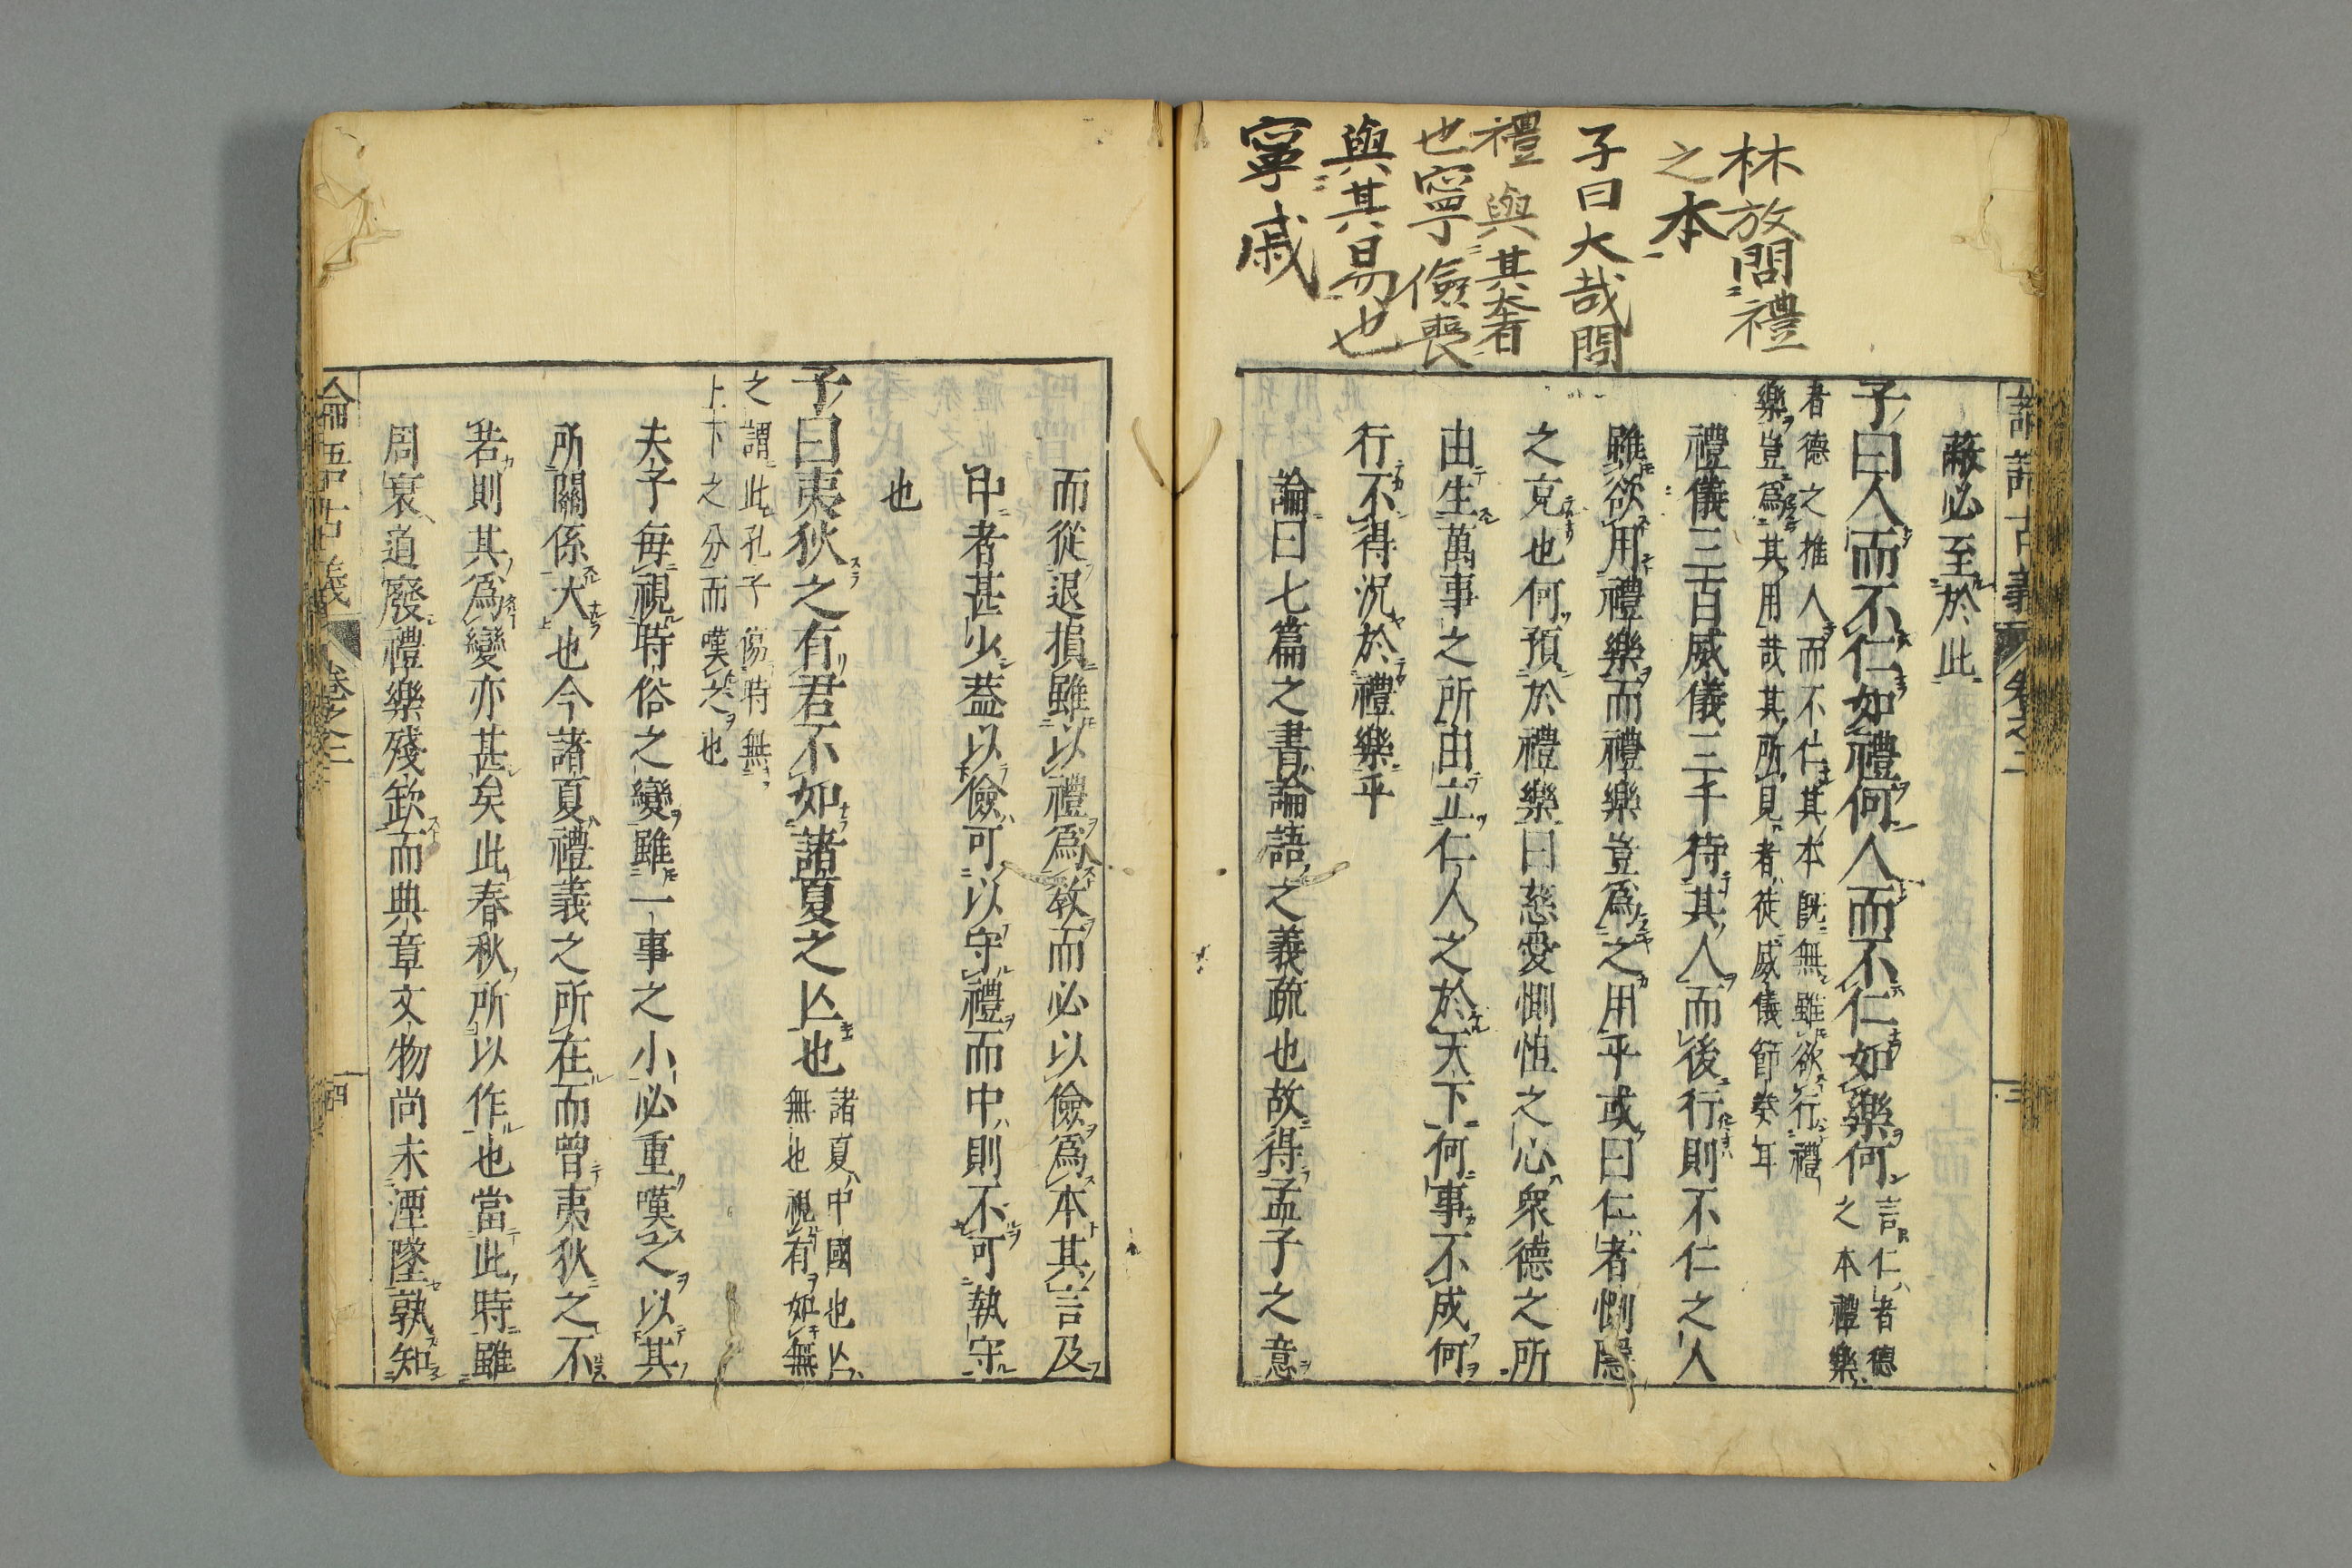 林放問禮
之本
子曰大哉問
禮與其奢
也寧儉喪
與其易也
寧戚
論語古義 卷之二 三
蔽必至於此
子曰人而不仁如禮何人而不仁如樂何
言仁者德
之本禮樂
者德之推人而不仁其本既無雖欲行禮
樂豈爲其用哉其所見者徒威儀節奏耳
禮儀三百威儀三千待其人而後行則不仁之人
雖欲用禮樂而禮樂豈爲之用乎或曰仁者惻隱
之充也何預於禮樂曰慈愛惻怛之心衆德之所
由生萬事之所由立仁人之於天下何事不成何
行不得況於禮樂乎
論曰七篇之書論語之義疏也故得孟子之意
而從退損雖以禮爲教而必以儉爲本其言及
中者甚少蓋以儉可以守禮而中則不可執守
也
子曰夷狄之有君不如諸夏之亡也
諸夏中國也亡
無也視有如無
之謂此孔子傷時無
上下之分而嘆之也
夫子每視時俗之變雖一事之小必重嘆之以其
所關係大也今諸夏禮義之所在而曾夷狄之不
若則其爲變亦甚矣此春秋所以作也當此時雖
周衰道廢禮樂殘缺而典章文物尚未湮墜孰知
論語古義 卷之二 四